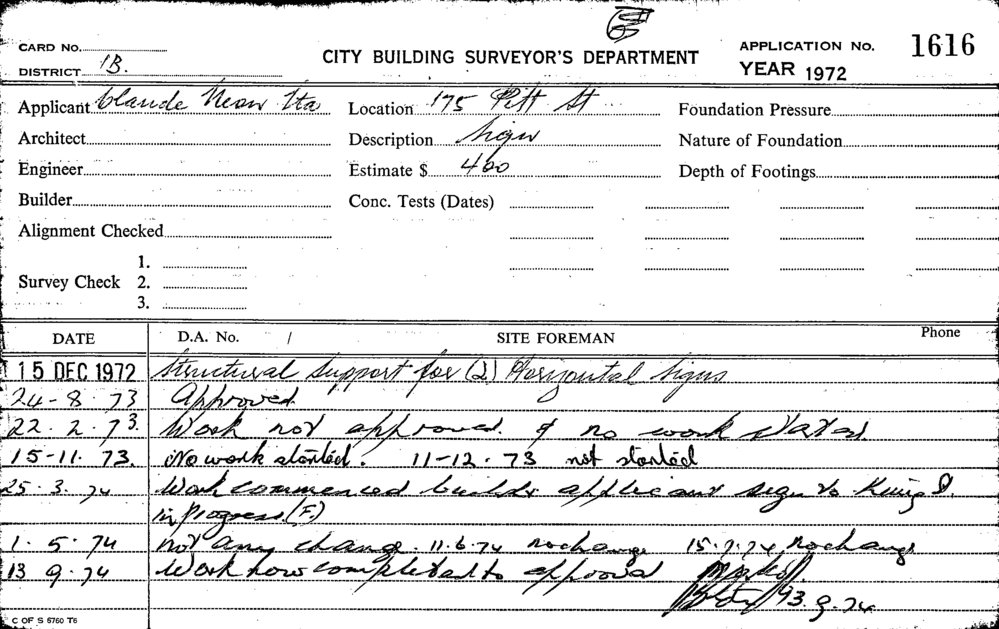 CARD No.
DISTRICT 1B.
CITY BUILDING SURVEYOR'S DEPARTMENT
APPLICATION No. 1616
YEAR 1972
Applicant Claude Neon Ltd
Location 175 Pitt St
Foundation Pressure
Architect
Description Sign
Nature of Foundation
Engineer
Estimate $ 400
Depth of Footings
Builder
Conc. Tests (Dates)
Alignment Checked
Survey Check 1.
2.
3.
DATE D.A. No. / SITE FOREMAN Phone
15 DEC 1972 Structural Support for (2) Horizontal Signs
24-8-73 Approved
22.2.73. Work not approved & no work stated
15-11.73. No work started. 11-12.73 not started
25.3.74 Work commenced applicant sign to King St.
in Progress (F.)
1.5.74 not any change. 11.6.74 no change 15.7.74 no change
13 9.74 Work now completed to approval
13.9.74
C OF S 6760 T6